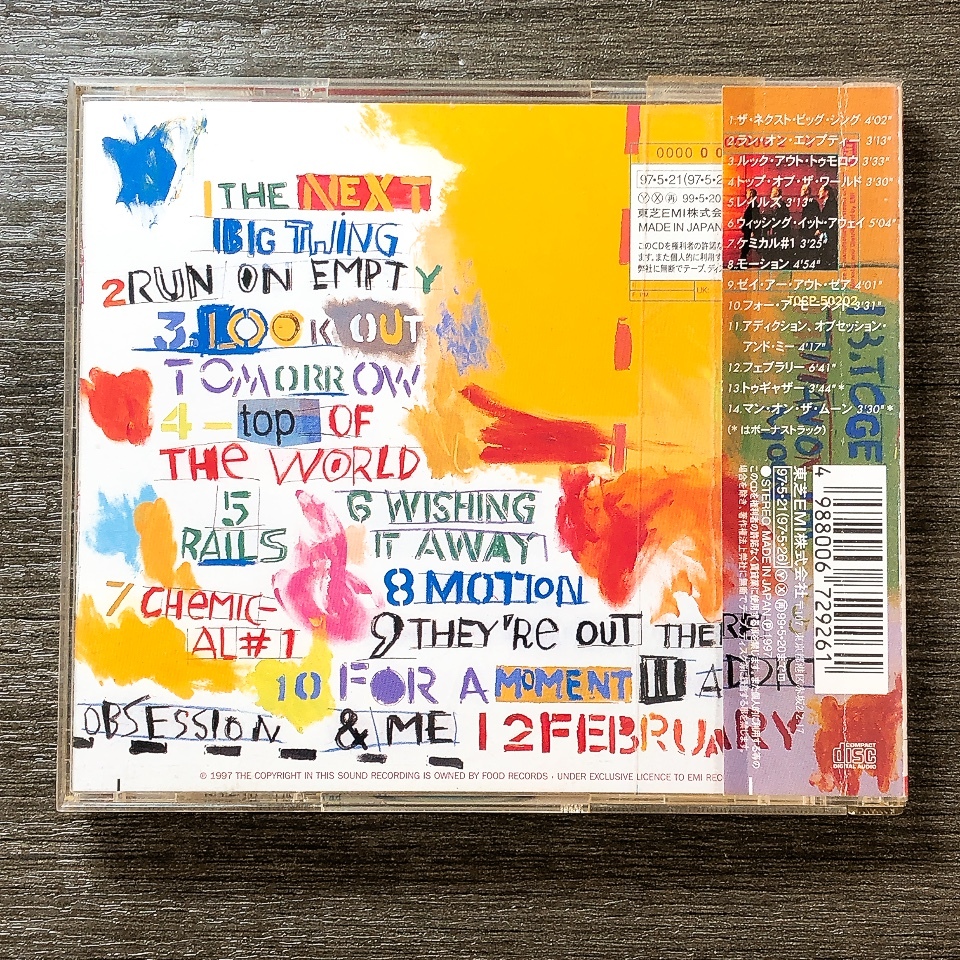 1 THE NEXT
BIG THING
2 RUN ON EMPTY
3 LOOK OUT
TOMORROW
4 - top OF
THE WORLD
5
RAILS
6 WISHING
IT AWAY
7 CHEMIC-
AL#1
8 MOTION
9 THEY'RE OUT THERE
10 FOR A MOMENT 11 ADDIC
OBSESSION & ME 12 FEBRUARY
© 1997 THE COPYRIGHT IN THIS SOUND RECORDING IS OWNED BY FOOD RECORDS · UNDER EXCLUSIVE LICENCE TO EMI REC
0000 0 0
97•5•21(97•5•2
Ⓨ Ⓧ 再 99•5•20
東芝EMI株式会
MADE IN JAPAN
このCDを権利者の許諾な
ます。また個人的に利用す
弊社に無断でテープ、ディ
1.ザ・ネクスト・ビッグ・シング 4'02"
2.ラン・オン・エンプティー 3'13"
3.ルック・アウト・トゥモロウ 3'33"
4.トップ・オブ・ザ・ワールド 3'30"
5.レイルズ 3'13"
6.ウィッシング・イット・アウェイ 5'04"
7.ケミカル#1 3'25"
8.モーション 4'54"
9.ゼイ・アー・アウト・ゼア 4'01"
10.フォー・ア・モーメント 3'31"
TOCP-50202
11.アディクション、オブセッション・
アンド・ミー 4'17"
12.フェブラリー 6'41"
13.トゥギャザー 3'44"*
14.マン・オン・ザ・ムーン 3'30"*
(*はボーナストラック)
4 988006 729261
東芝EMI株式会社
97•5•21(97•5•26) Ⓨ Ⓧ 再 99•5•20
●STEREO MADE IN JAPAN Ⓟ1997
COMPACT
disc
DIGITAL AUDIO